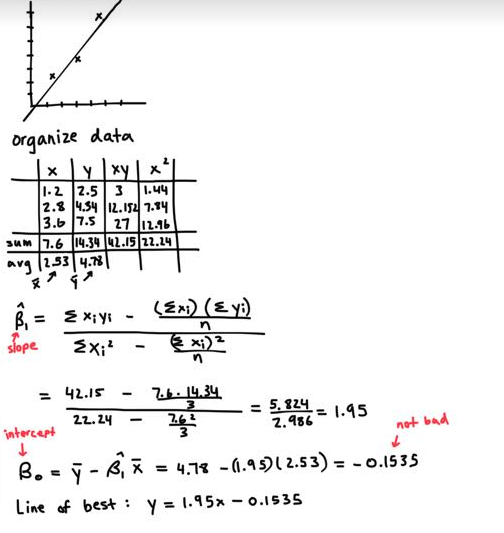 organize data
x y xy x²
1.2 2.5 3 1.44
2.8 4.34 12.152 7.84
3.6 7.5 27 12.96
sum 7.6 14.34 42.15 22.24
avg 2.53 4.78
x̄ ↗ ȳ ↗
β̂₁ = Σxᵢyᵢ - (Σxᵢ)(Σyᵢ)/n
slope Σxᵢ² - (Σxᵢ)²/n
= 42.15 - 7.6 · 14.34/3
22.24 - 7.6²/3 = 5.824/2.986 = 1.95
intercept not bad
β₀ = ȳ - β̂₁x̄ = 4.78 - (1.95)(2.53) = -0.1535
Line of best : y = 1.95x - 0.1535